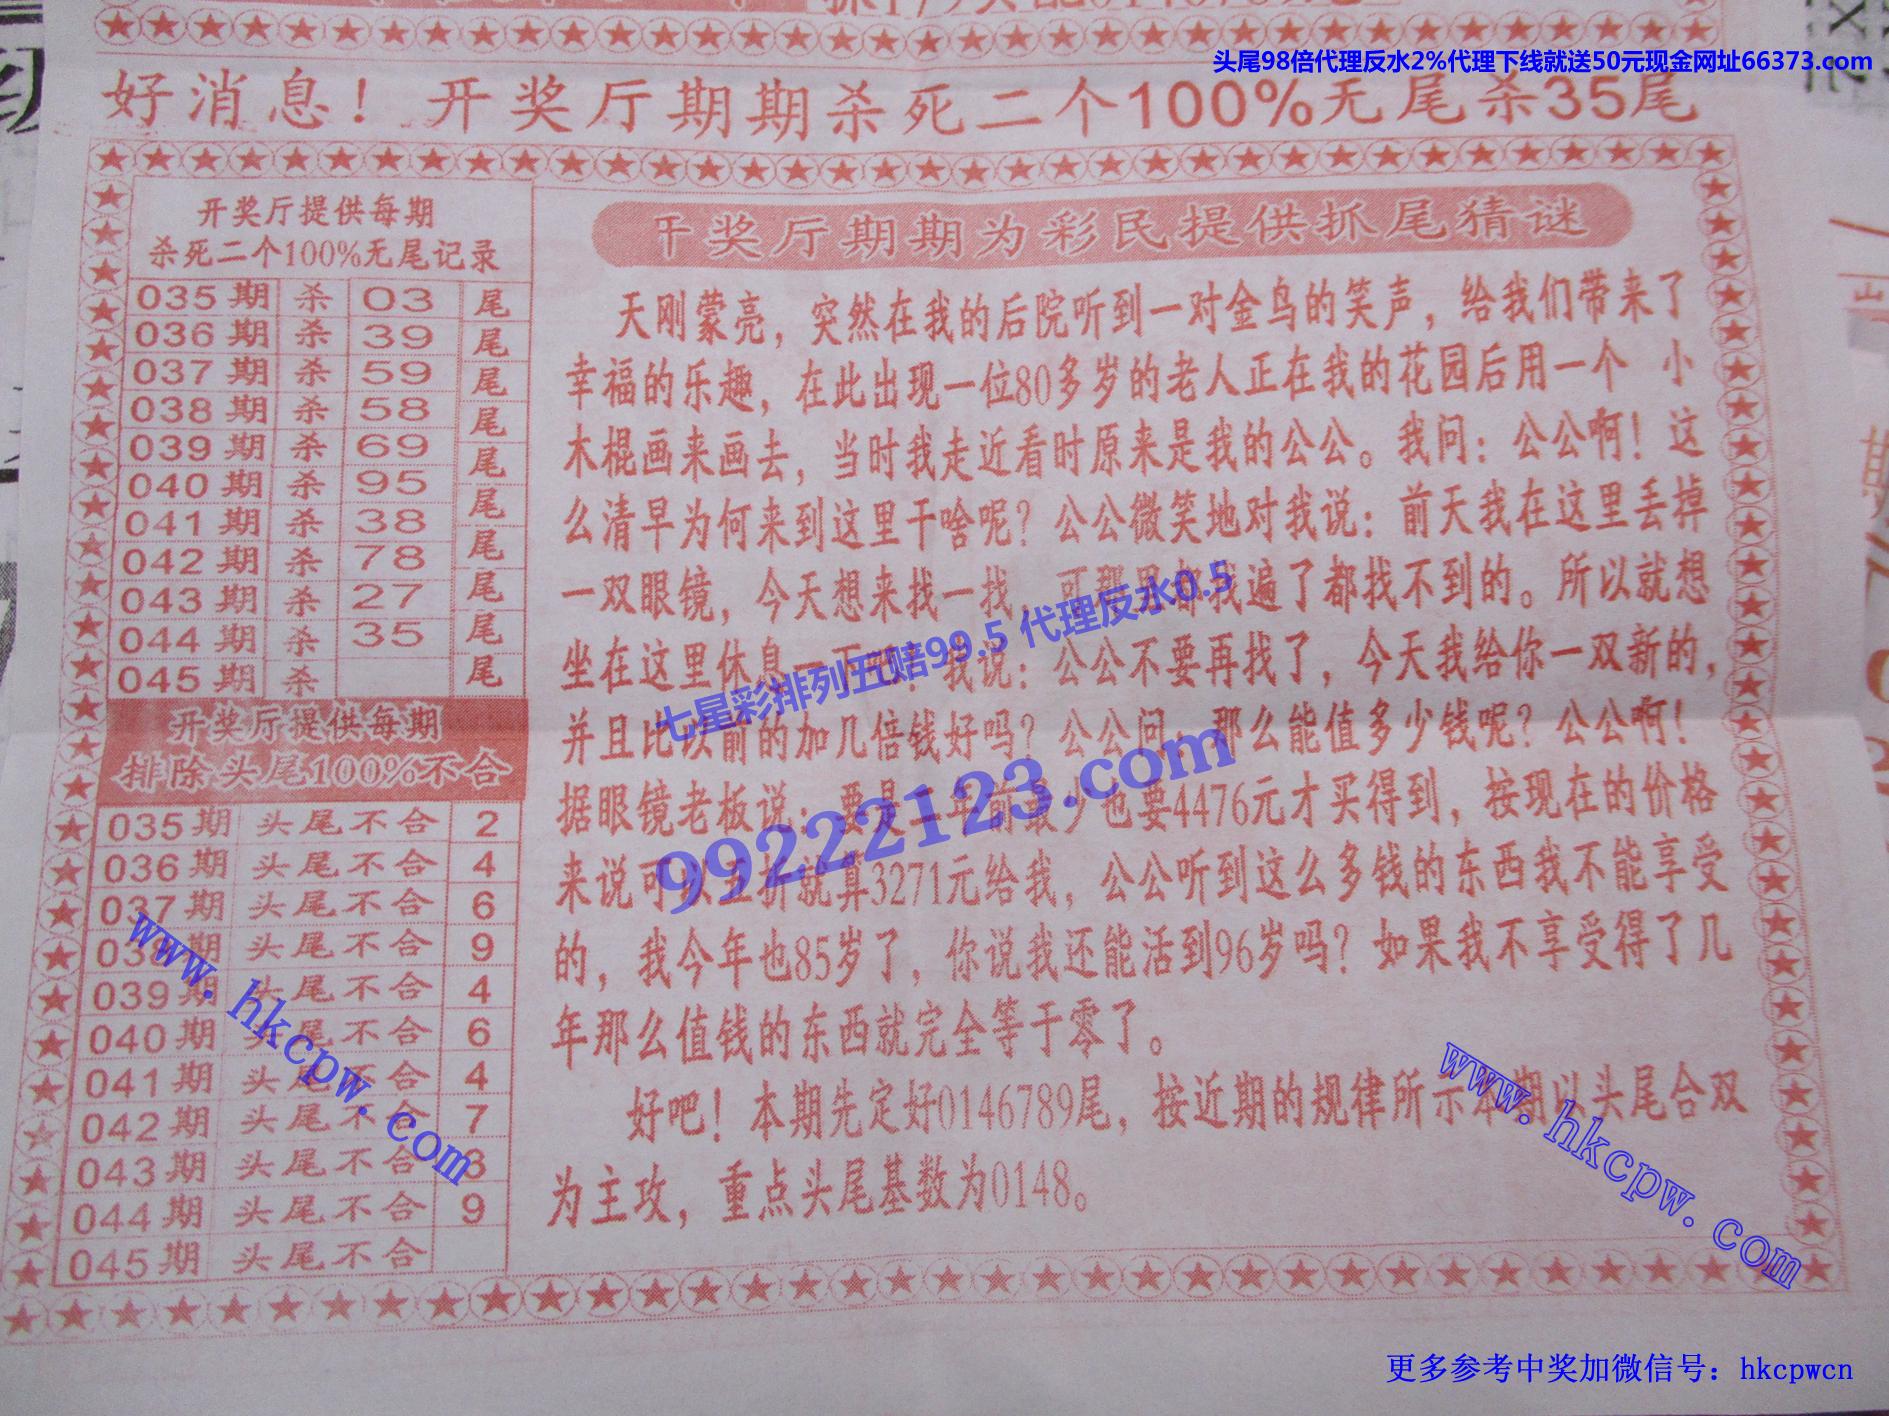 头尾98倍代理反水2%代理下线就送50元现金网址66373.com
好消息！开奖厅期期杀死二个100%无尾杀35尾
开奖厅提供每期
杀死二个100%无尾记录
035期 杀 03 尾
036期 杀 39 尾
037期 杀 59 尾
038期 杀 58 尾
039期 杀 69 尾
040期 杀 95 尾
041期 杀 38 尾
042期 杀 78 尾
043期 杀 27 尾
044期 杀 35 尾
045期 杀 尾
开奖厅提供每期
排除头尾100%不合
035期 头尾不合 2
036期 头尾不合 4
037期 头尾不合 6
038期 头尾不合 9
039期 头尾不合 4
040期 头尾不合 6
041期 头尾不合 4
042期 头尾不合 7
043期 头尾不合
044期 头尾不合 9
045期 头尾不合
奖厅期期为彩民提供抓尾猜谜
天刚蒙亮，突然在我的后院听到一对金鸟的笑声，给我们带来了
幸福的乐趣，在此出现一位80多岁的老人正在我的花园后用一个 小
木棍画来画去，当时我走近看时原来是我的公公。我问：公公啊！这
么清早为何来到这里干啥呢？公公微笑地对我说：前天我在这里丢掉
一双眼镜，今天想来找一找，可那里都找遍了都找不到的。所以就想
坐在这里休息一下 我说：公公不要再找了，今天我给你一双新的，
并且比以前的加几倍钱好吗？公公问：那么能值多少钱呢？公公啊！
据眼镜老板说：要是 年前最少也要4476元才买得到，按现在的价格
来说可以 折就算3271元给我，公公听到这么多钱的东西我不能享受
的，我今年也85岁了，你说我还能活到96岁吗？如果我不享受得了几
年那么值钱的东西就完全等于零了。
好吧！本期先定好0146789尾，按近期的规律所示本期以头尾合双
为主攻，重点头尾基数为0148。
七星彩排列五赔99.5 代理反水0.5
99222123.com
www.hkcpw.com
www.hkcpw.com
更多参考中奖加微信号：hkcpwcn